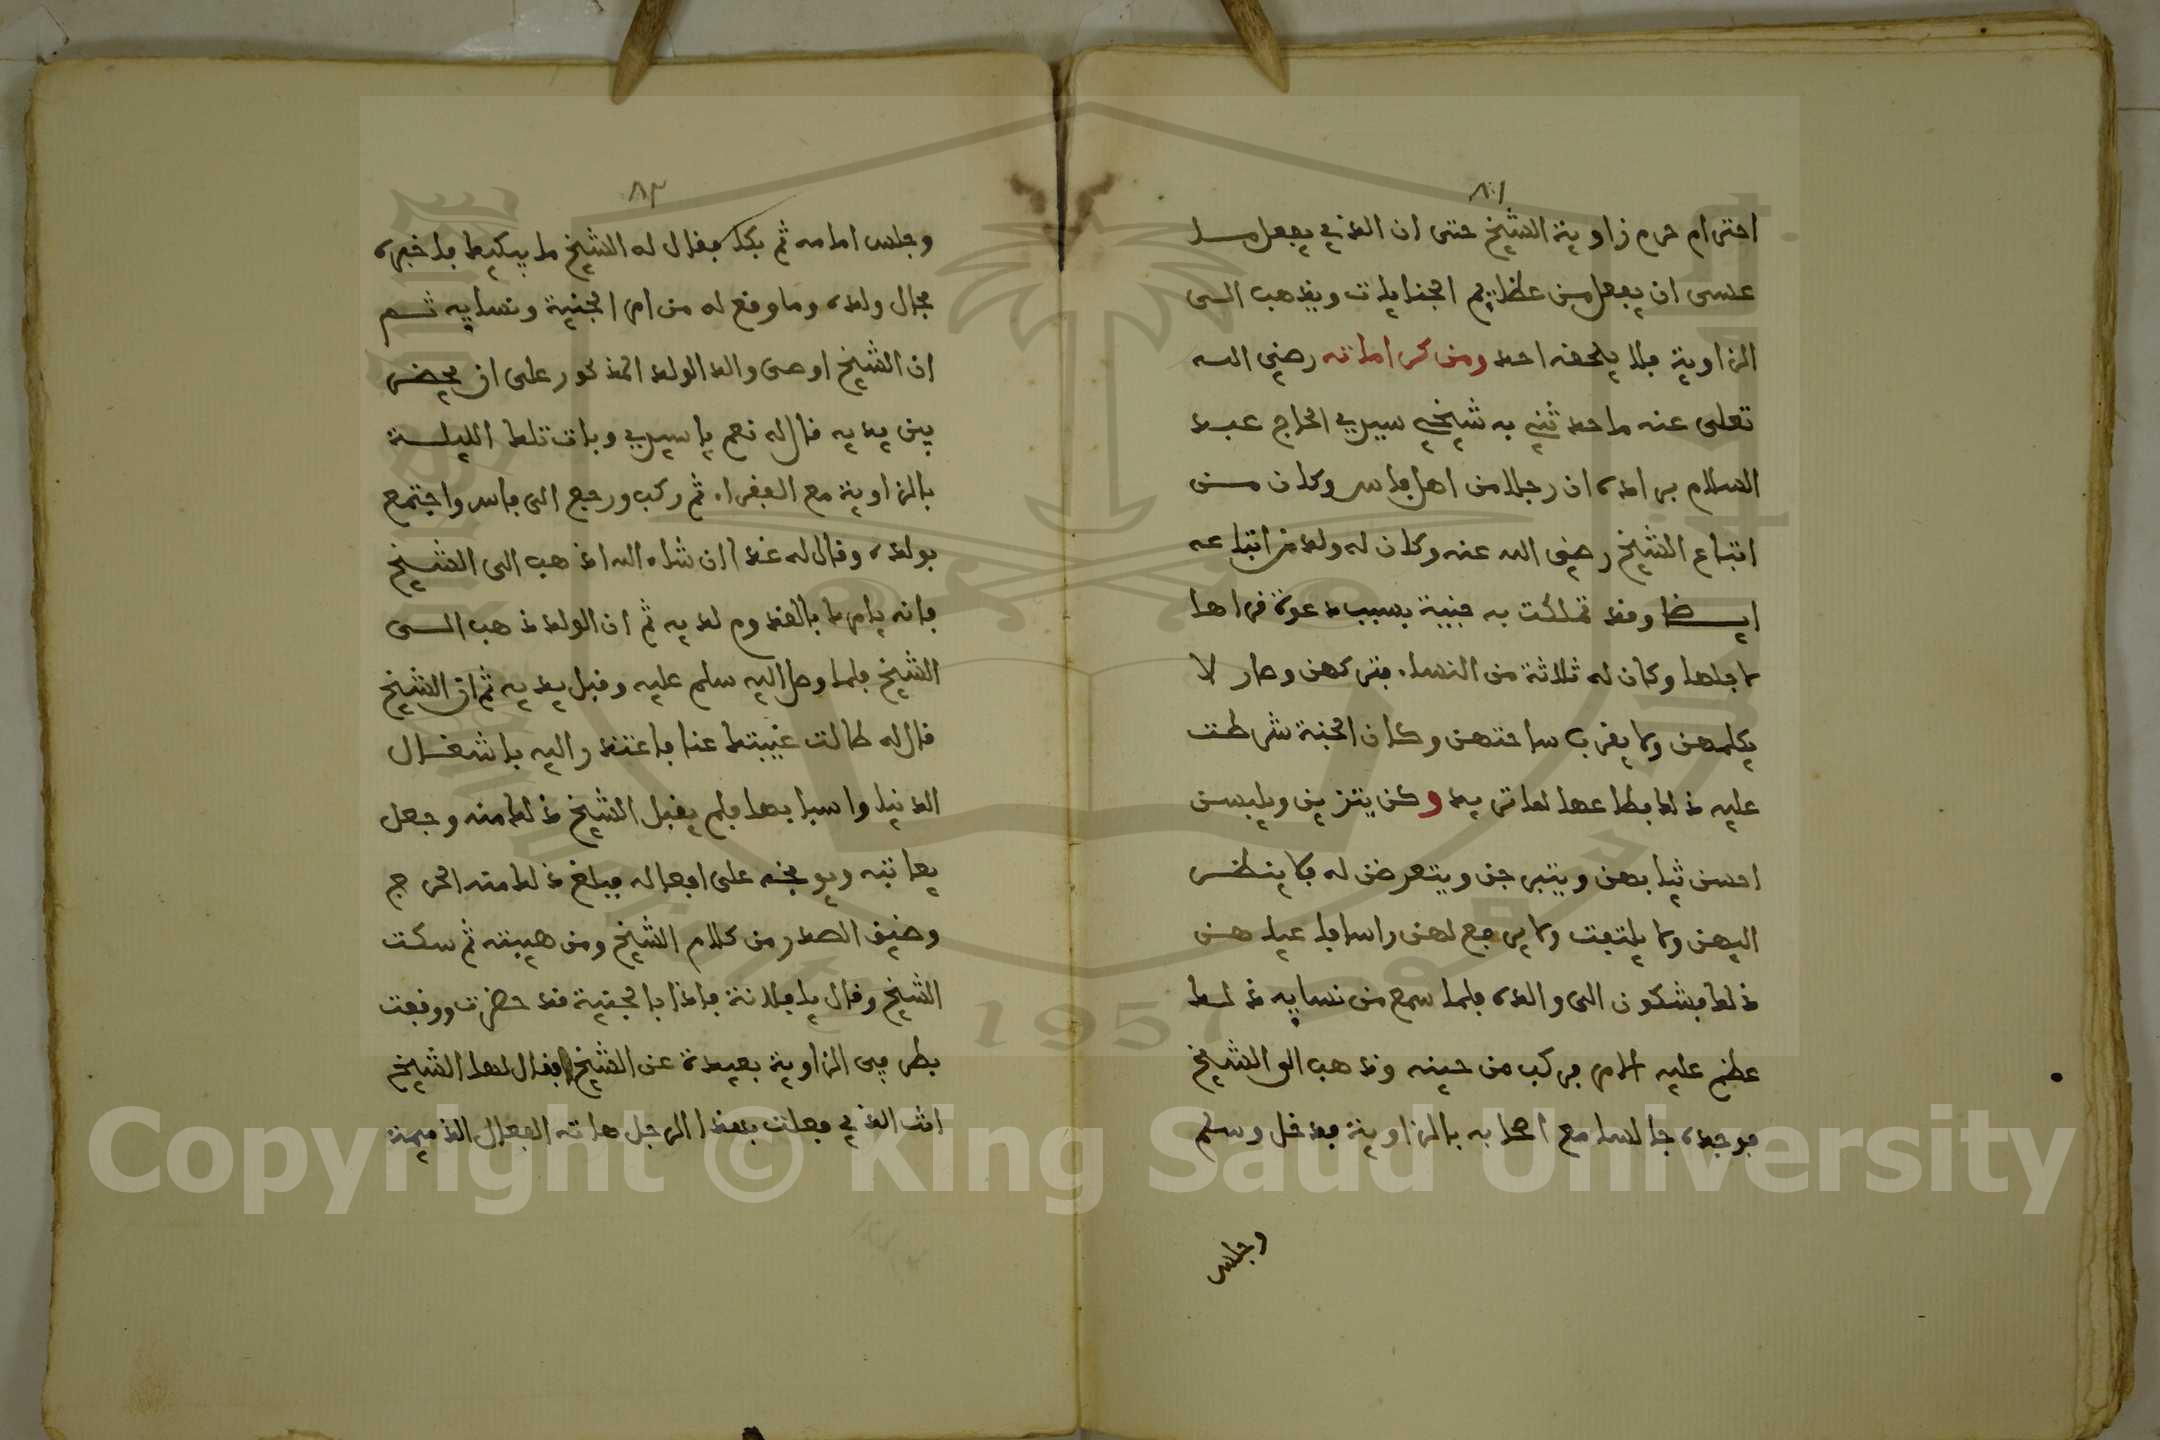 ٨١
احترام حرم زاوية الشيخ حتى ان الذي يفعل ما
عسى ان يفعل من عظائم الجنايات ويذهب الى
الزاوية فلا يلحقه احد ومن كراماته رضي الله
تعلى عنه ما حدثني به شيخي سيدي الحاج عبد
السلام برادة ان رجلا من اهل فاس وكان من
اتباع الشيخ رضي الله عنه وكان له ولد من اتباعه
ايضا وقد تملكت به جنية بسبب دعوة قراها
لاجلها وكان له ثلاثة من النساء فتركهن وصار لا
يكلمهن ولا يقرب ساحتهن وكان الجنية شرطت
عليه ذلك فطاعها لما تريد وكن يتزين ويلبسن
احسن ثيابهن ويتبرجن ويتعرضن له فلا ينظر
اليهن ولا يلتفت ولا يرجع لهن راسا فاعياهن
ذلك فشكون الى والده فلما سمع من نسايه ذلك
عظم عليه الامر فركب من حينه وذهب الى الشيخ
فوجده جالسا مع اصحابه بالزاوية فدخل وسلم
وجلس
٨٢
وجلس امامه ثم بكا فقال له الشيخ ما يبكيك فاخبره
بحال ولده وما وقع له من امر الجنية ونسايه ثم
ان الشيخ اوصى والد الولد المذكور على ان يحضر
بين يديه قال له نعم يا سيدي وبات تلك الليلة
بالزاوية مع الفقراء ثم ركب ورجع الى فاس واجتمع
بولده وقال له غدا ان شاء الله اذهب الى الشيخ
فانه يامرك بالقدوم لديه ثم ان الولد ذهب الى
الشيخ فلما وصل اليه سلم عليه وقبل يديه ثم ان الشيخ
قال له طالت غيبتك عنا فاعتذر اليه باشغال
الدنيا واسبابها فلم يقبل الشيخ ذلك منه وجعل
يعاتبه ويوبخه على افعاله فبلغ ذلك منه الحرج
وضيق الصدر من كلام الشيخ ومن هيبته ثم سكت
الشيخ وقال يا فلانة فاذا بالجنية قد حضرت ووقفت
بطرفي الزاوية بعيدة عن الشيخ فقال لها الشيخ
انت الذي فعلت بهذا الرجل هاته الفعال الذميمة
Copyright © King Saud University
1957